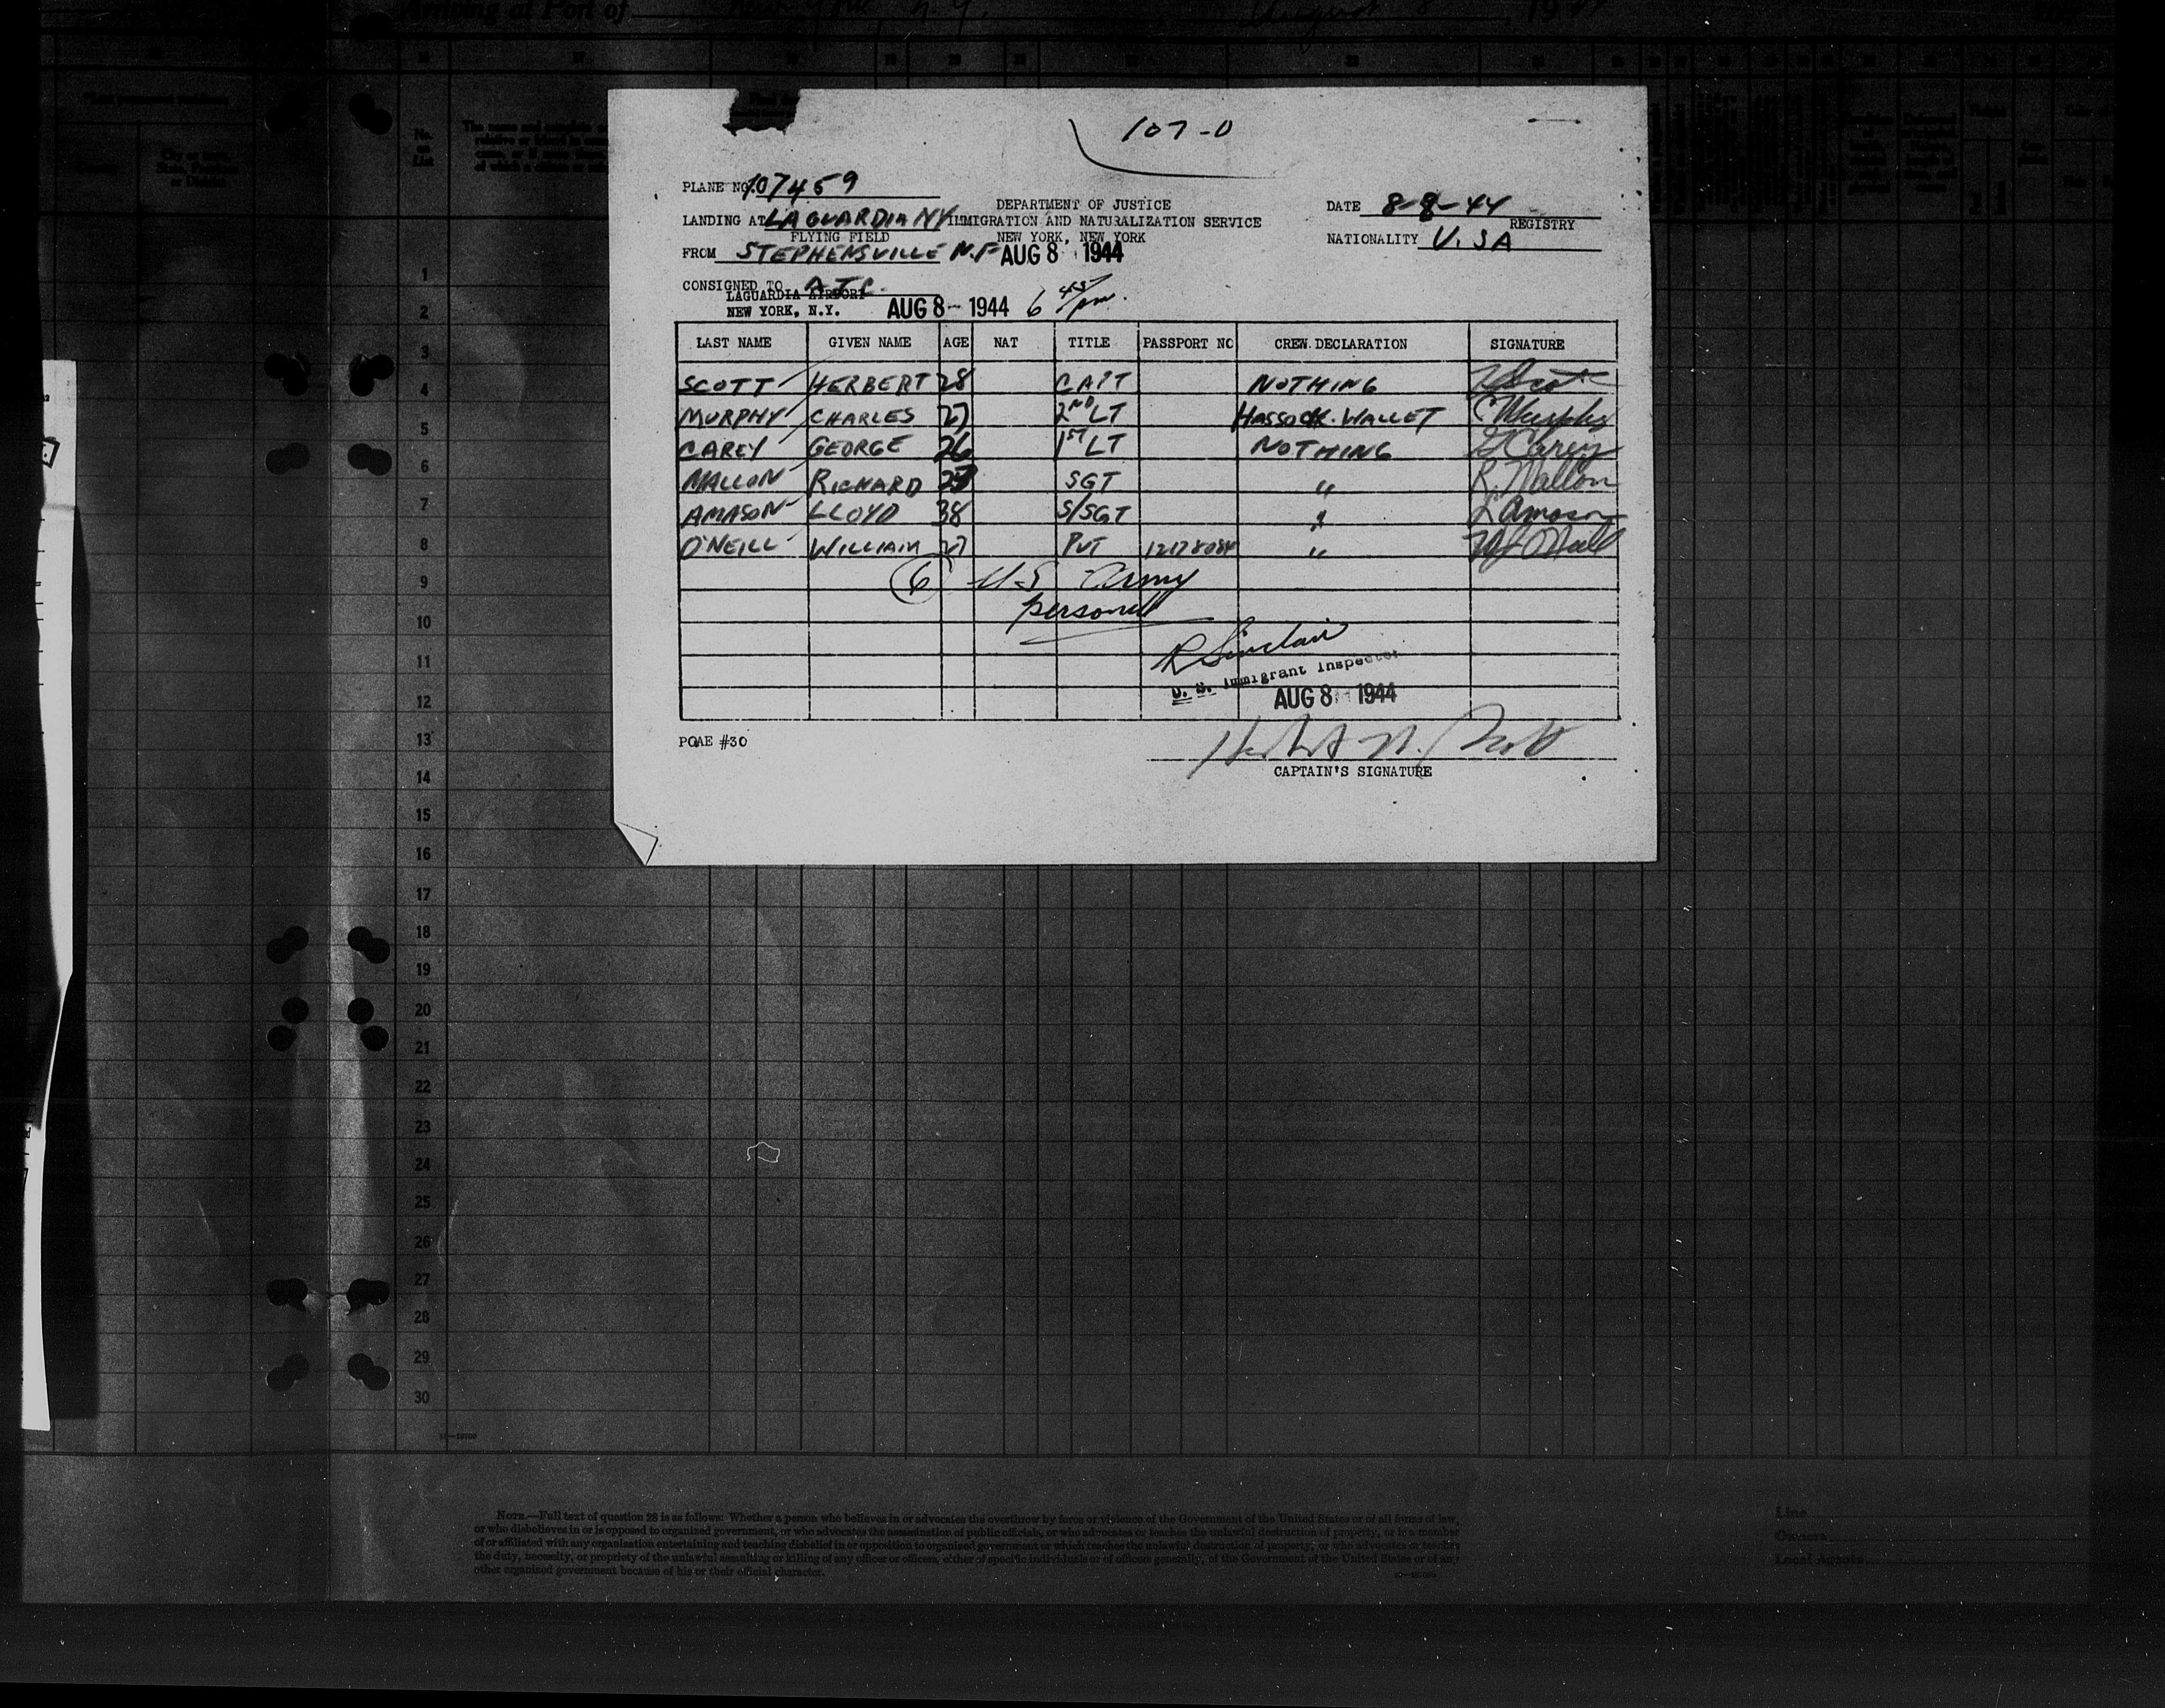 Arriving at Port of New York, N.Y. August 8, 1944
107-0
PLANE NO. 107459
DEPARTMENT OF JUSTICE
DATE 8-8-44
LANDING AT LAGUARDIA NY IMMIGRATION AND NATURALIZATION SERVICE
REGISTRY
FLYING FIELD NEW YORK, NEW YORK
NATIONALITY U.SA
FROM STEPHENSVILLE N.F AUG 8 1944
CONSIGNED TO A.T.C.
LAGUARDIA AIRPORT
NEW YORK, N.Y. AUG 8 - 1944 6 45/pm.
LAST NAME GIVEN NAME AGE NAT TITLE PASSPORT NO CREW DECLARATION SIGNATURE
SCOTT HERBERT 28 CAPT NOTHING H Scott
MURPHY CHARLES 27 2ND LT HASSOCK. WALLET C Murphy
CAREY GEORGE 26 1ST LT NOTHING G Carey
MALLON RICHARD SGT " R. Mallon
AMASON LLOYD 38 S/SGT " L Amason
O'NEILL WILLIAM 27 PVT 12178084 " W J O'Neill
6 U.S Army
personell
R Sinclair
U. S. Immigrant Inspector
AUG 8 1944
POAE #30
Herbert N. Scott
CAPTAIN'S SIGNATURE
1
2
3
4
5
6
7
8
9
10
11
12
13
14
15
16
17
18
19
20
21
22
23
24
25
26
27
28
29
30
NOTE.—Full text of question 28 is as follows: Whether a person who believes in or advocates the overthrow by force or violence of the Government of the United States or of all forms of law,
or who disbelieves in or is opposed to organized government, or who advocates the assassination of public officials, or who advocates or teaches the unlawful destruction of property, or is a member
of or affiliated with any organization entertaining and teaching disbelief in or opposition to organized government or which teaches the unlawful destruction of property, or who advocates or teaches
the duty, necessity, or propriety of the unlawful assaulting or killing of any officer or officers, either of specific individuals or of officers generally, of the Government of the United States or of any
other organized government because of his or their official character.
Line
Owners
Local Agents